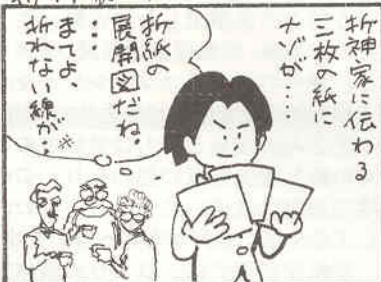 折神家に伝わる
三枚の紙に
ナゾが……
折紙の
展開図だね。
…
まてよ、
折れない線が…※